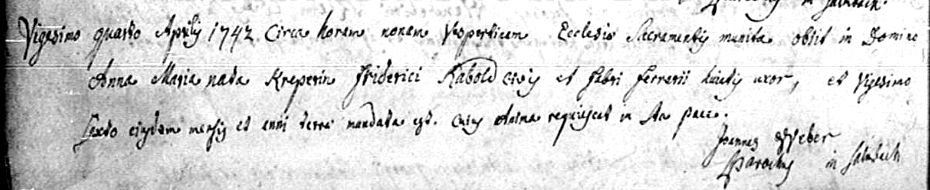 in Salmbach.
Vigesimo quarto Aprilis 1742 Circa horam nonam Vespertinam Ecclesiæ Sacramentis munita obiit in Domino
Anna Maria nata Kreperin Friderici Rabold civis et fabri ferrarii huiatis uxor, et Vigesimo
Sexto eiusdem mensis et anni terræ mandata est. Cuius Anima requiescat in pace.
Joannes Weber
Parochus in Salmbach